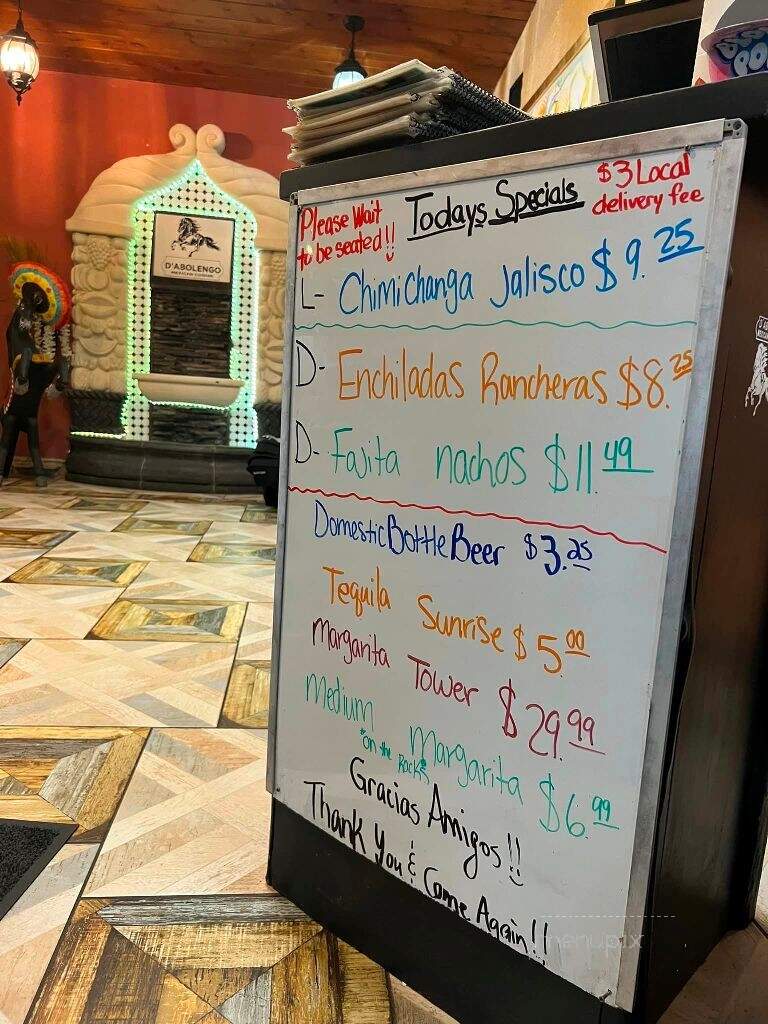 Please Wait
to be seated!!
Todays Specials
$3 Local
delivery fee
L- Chimichanga Jalisco $9.25
D- Enchiladas Rancheras $8.25
D- Fajita nachos $11.49
Domestic Bottle Beer $3.25
Tequila Sunrise $5.00
Margarita Tower $29.99
Medium Margarita $6.99
*on the Rocks
Gracias Amigos!!
Thank You & Come Again!!
D'ABOLENGO
MEXICAN CUISINE
menupix